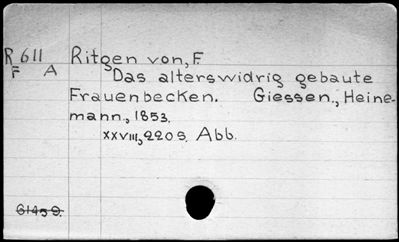 R 611 Ritgen von, F.
F A Das alterswidrig gebaute
Frauenbecken. Giessen., Heine-
mann., 1853.
XXVIII, 220 S. Abb.
61459.